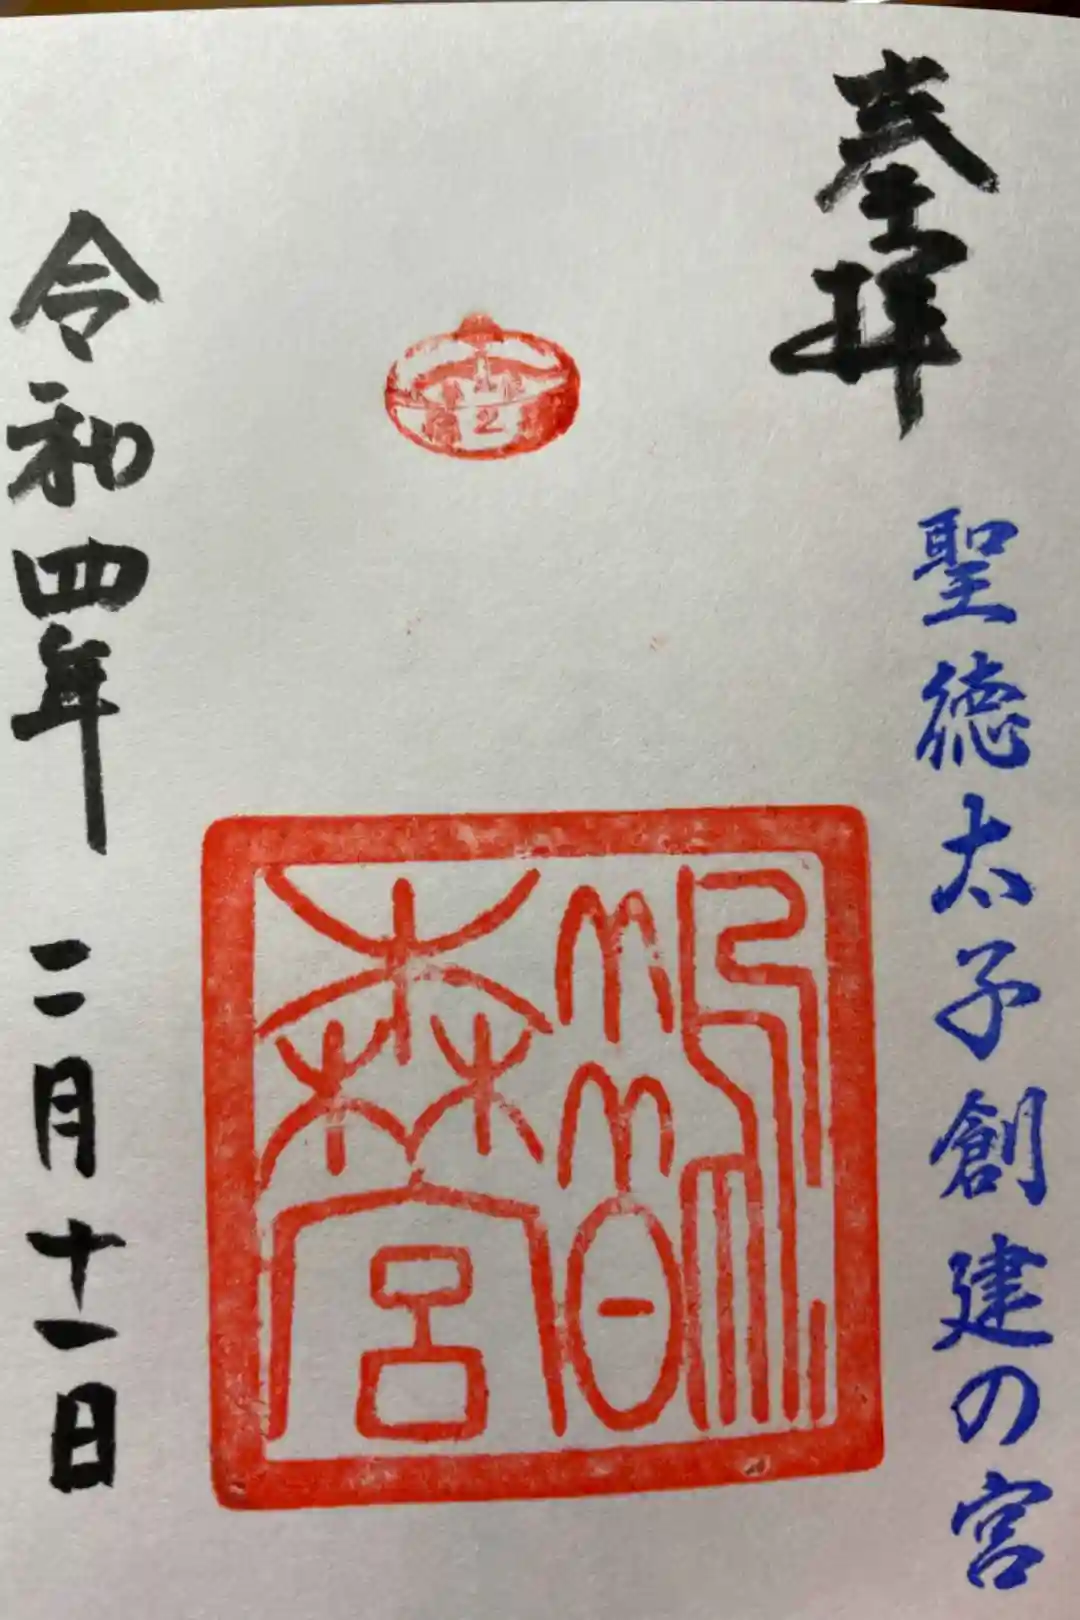 奉拝
聖徳太子創建の宮
鵲森宮
令和四年 二月十一日